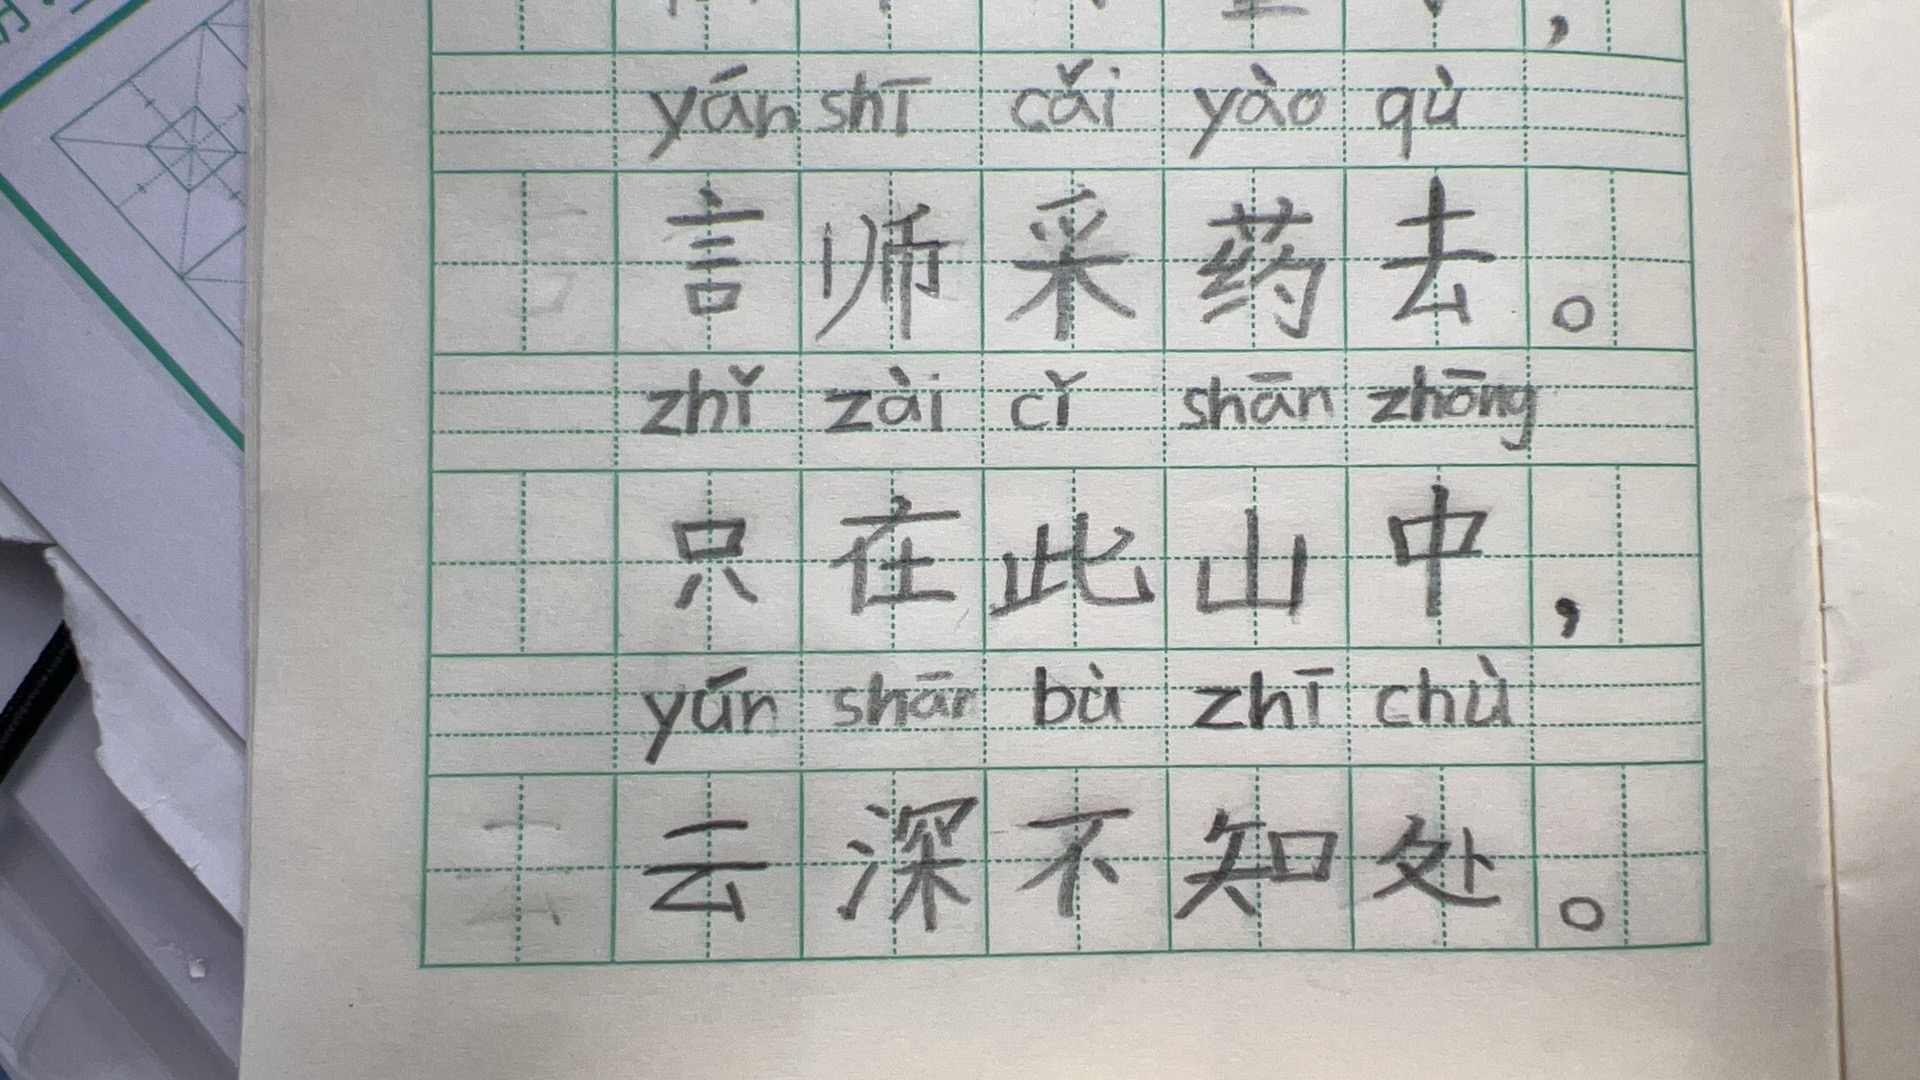 yán shī cǎi yào qù
言师采药去。
zhǐ zài cǐ shān zhōng
只在此山中，
yún shān bù zhī chù
云深不知处。